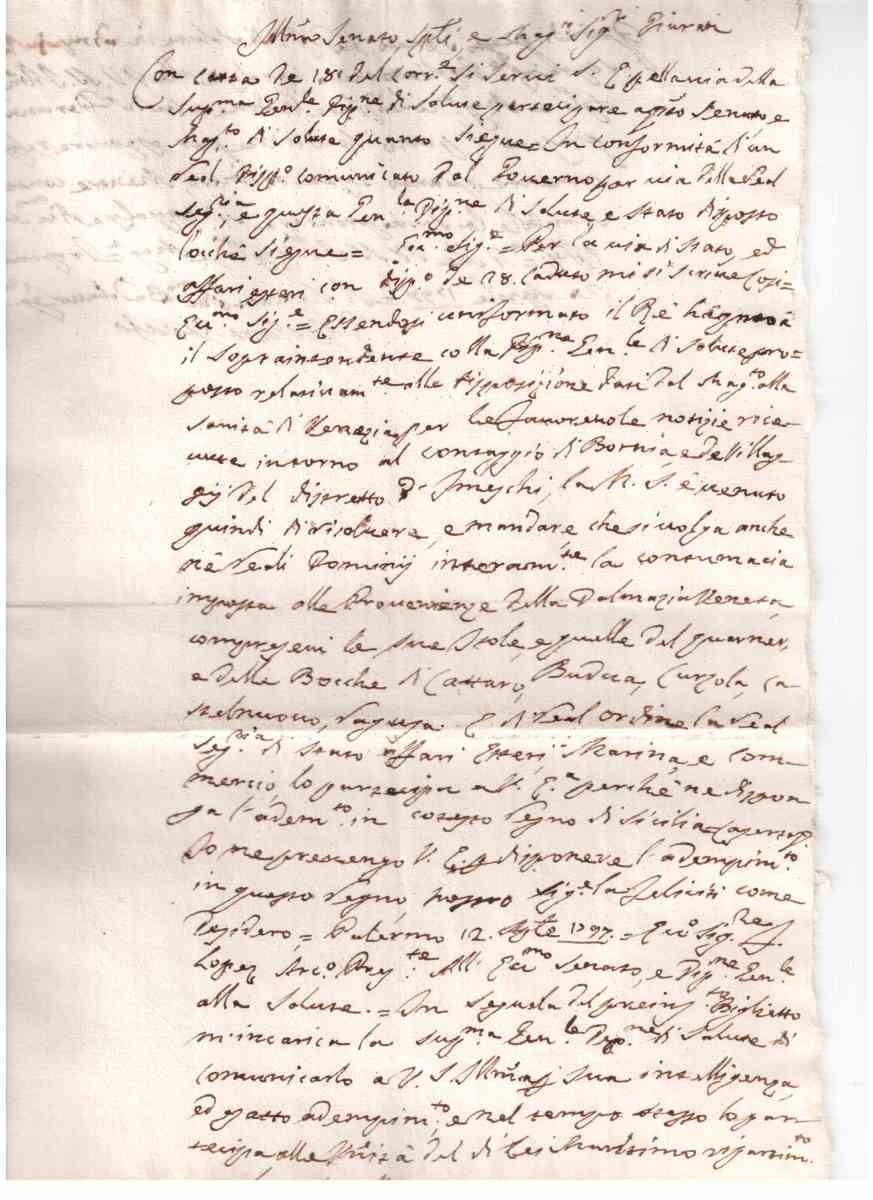 Illmo Senato, Spli, e Mag.ci Sig.ri Giurati
Con carta de 18 del corr.e si serví S. E. pella via della
Sup.ma Gen.le Dip.ne di Salute partecipare a qsto Senato e
Mag.to di Salute quanto siegue = In conformitá d'un
Real Disp.o comunicato dal Governo per via della Real
Seg.ria, e questa Gen.le Dip.ne di Salute e stato disposto
locché siegue = Ecc.mo Sig.e = Per la via di Stato, ed
affari esteri con disp.o de 28. caduto mi si scrive cosi =
Ecc.mo Sig.e = Essendosi uniformato il Ré
il Sopraintendente colla Dep.ne Gen.le di Salute pro=
posto relativam.te alle disposizione date dal Mag.to alla
sanitá di Venezia per le favorevole notizie rice=
vute intorno al contaggio di Bosnia, e de Villag=
gij del distretto d' Imoschi, la M. S. é venuto
quindi di risolvere, e mandare che si tolga anche
né Reali Dominij interam.te la contumacia
imposta alle Provenienze della Dalmazia Veneta,
compresevi le sue Isole, e quelle del quarner,
e delle Bocche di Cattaro, Budua, Curzola, Ca=
stelnuovo, Ragusa. E di Real ordine la Real
Seg.ria di Stato affari Esteri, Marina, e com=
mercio, lo partecipa a V. E.a perché ne dispon=
ga l'adem.to in cotesto Regno di Sicilia =
Io ne prevengo V. E. disponere l'adempim.to
in questo Regno nostro Sig.e la feliciti come
desidero = Palermo 12. Sptte 1797. = Ecc.o Sig.re J.
Lopez Arc.o Pres.te All. Ecc.mo Senato, e Dip.ne Gen.le
alla Salute. = In seguela del preins.to Biglietto
m'incarica la sup.ma Gen.le Dep.ne di Salute di
comunicarlo a V. S. Illma sua intelligenza,
ed esatto adempim.to, e nel tempo stesso lo par=
tecipa alle Universitá del di Lei Marittimo ripartim.to